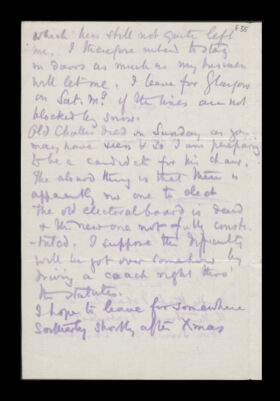 535
which has still not quite left
me. I therefore intend to stay
in doors as much as my business
will let me. I leave for Glasgow
on Sat. Mg if the lines are not
blocked by snow.
Old Challis died on Sunday as you
may have seen & so I am preparing
to be a candidate for his chair.
The absurd thing is that there is
apparently no one to elect
The old electoral board is dead
& the new one not fully consti-
tuted. I suppose the difficulty
will be got over somehow by
driving a coach right thro'
the statutes.
I hope to leave for somewhere
Southerly shortly after Xmas